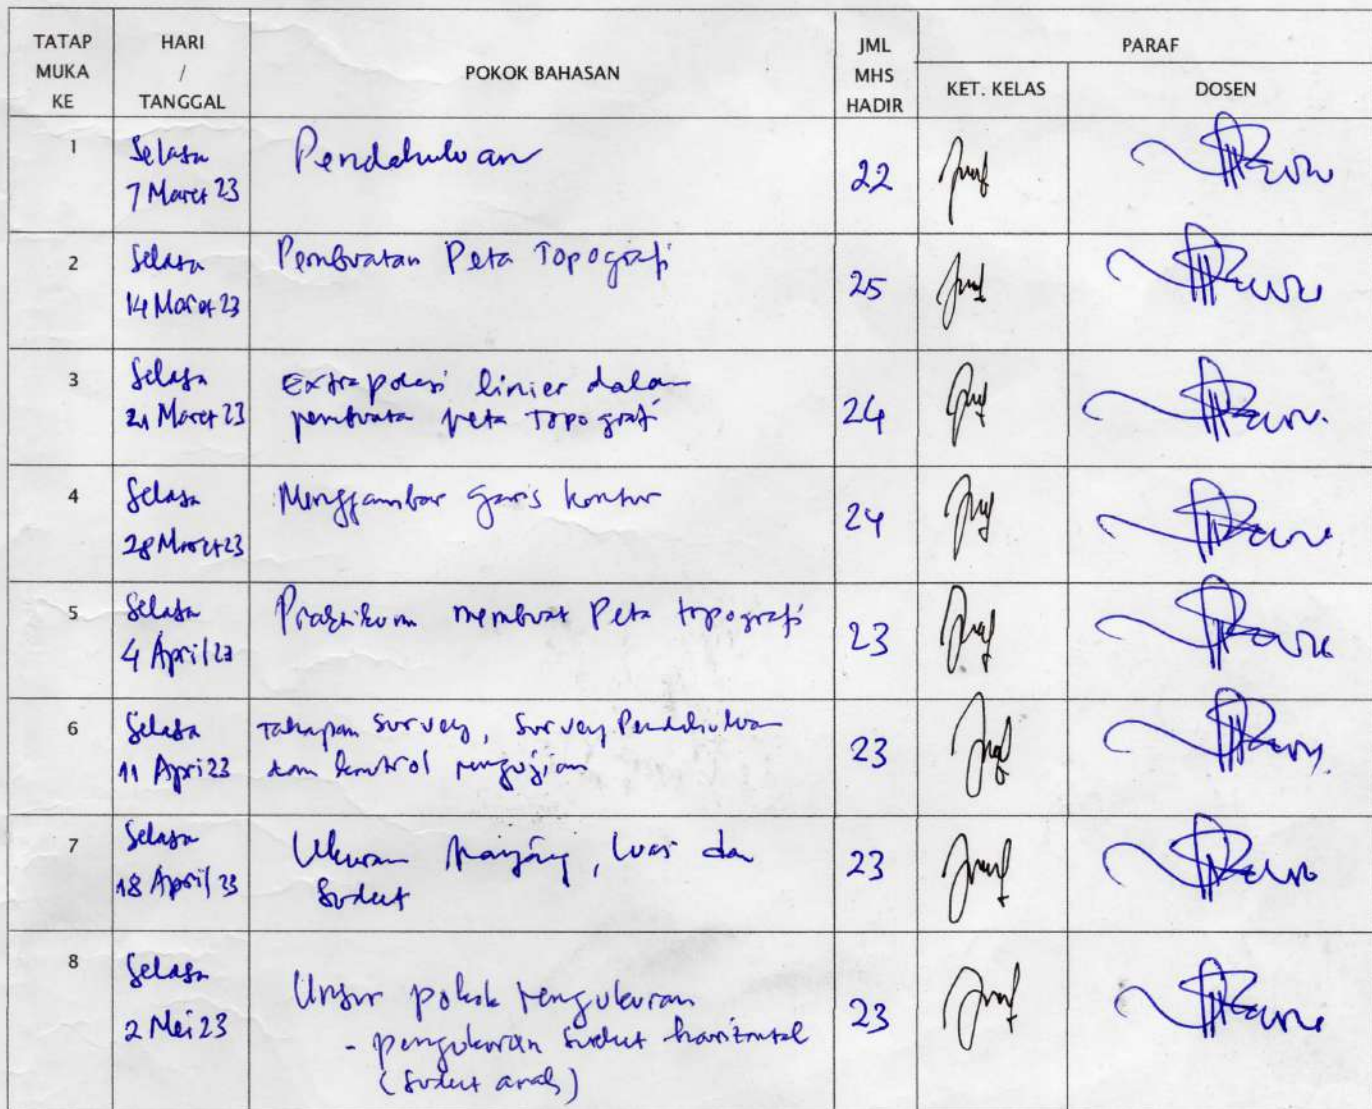 TATAP MUKA KE
HARI / TANGGAL
POKOK BAHASAN
JML MHS HADIR
PARAF
KET. KELAS
DOSEN
1
Selasa
7 Maret 23
Pendahuluan
22
2
Selasa
14 Maret 23
Pembuatan Peta Topografi
25
3
Selasa
21 Maret 23
Extrapolasi linier dalam
pembuata peta Topografi
24
4
Selasa
28 Maret 23
Menggambar garis kontur
24
5
Selasa
4 April 23
Praktikum membuat Peta topografi
23
6
Selasa
11 Apri 23
Tahapan Survey, Survey Pendahuluan
dan kontrol pengujian
23
7
Selasa
18 April 23
Ukuran panjang, luas dan
Sudut
23
8
Selasa
2 Mei 23
Unsur pokok pengukuran
- pengukuran sudut horizontal
(sudut arah)
23